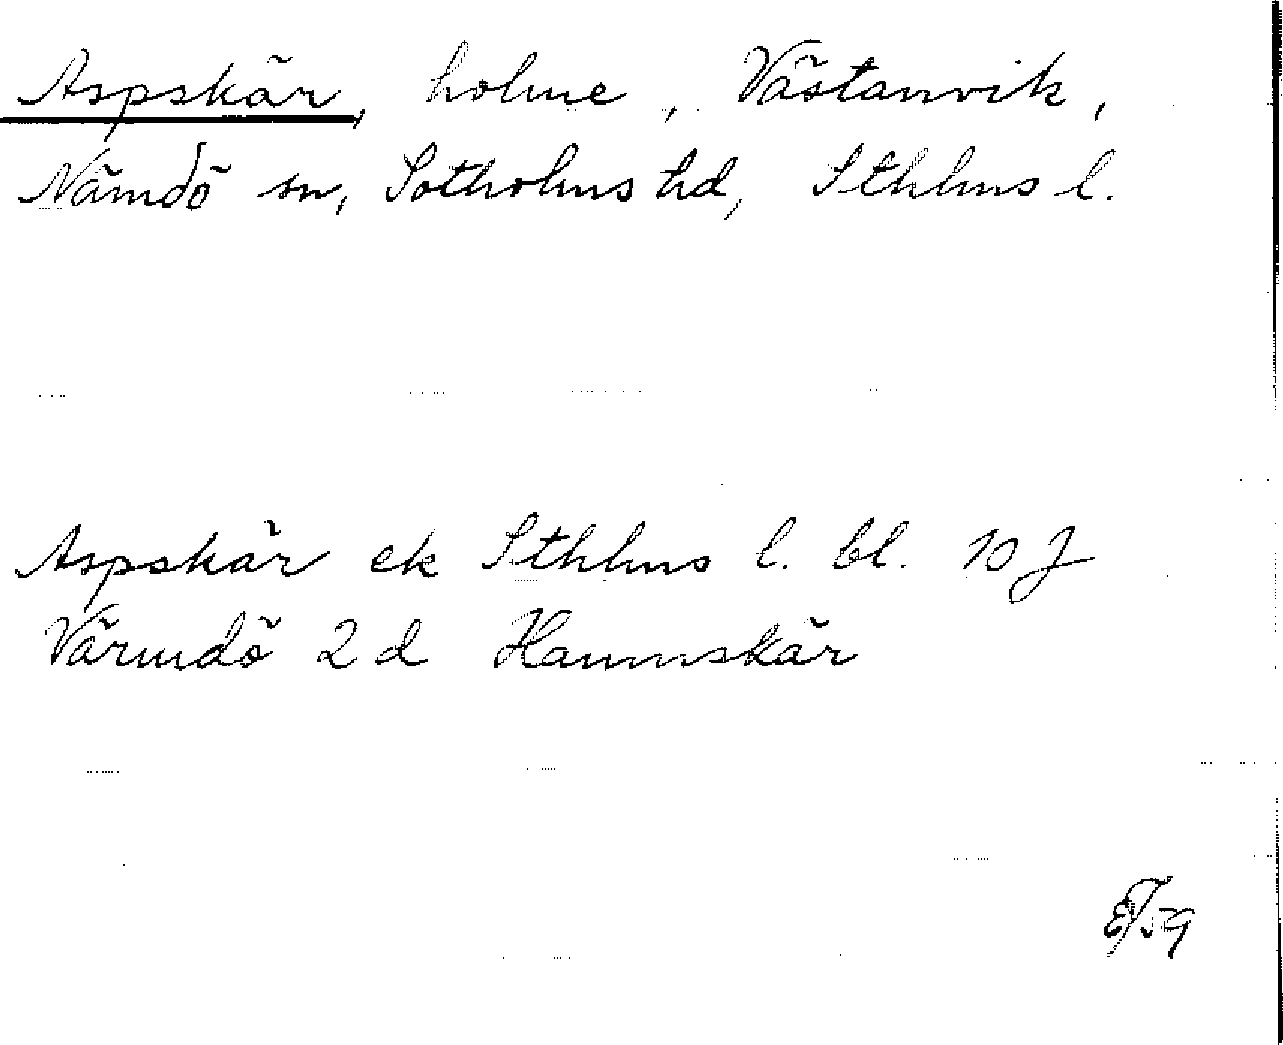 Aspskär, holme, Västanvik,
Nämdö sn, Sotholms hd, Sthlms l.
Aspskär ek Sthlms l. bl. 10 J
Värmdö 2 d Hamnskär